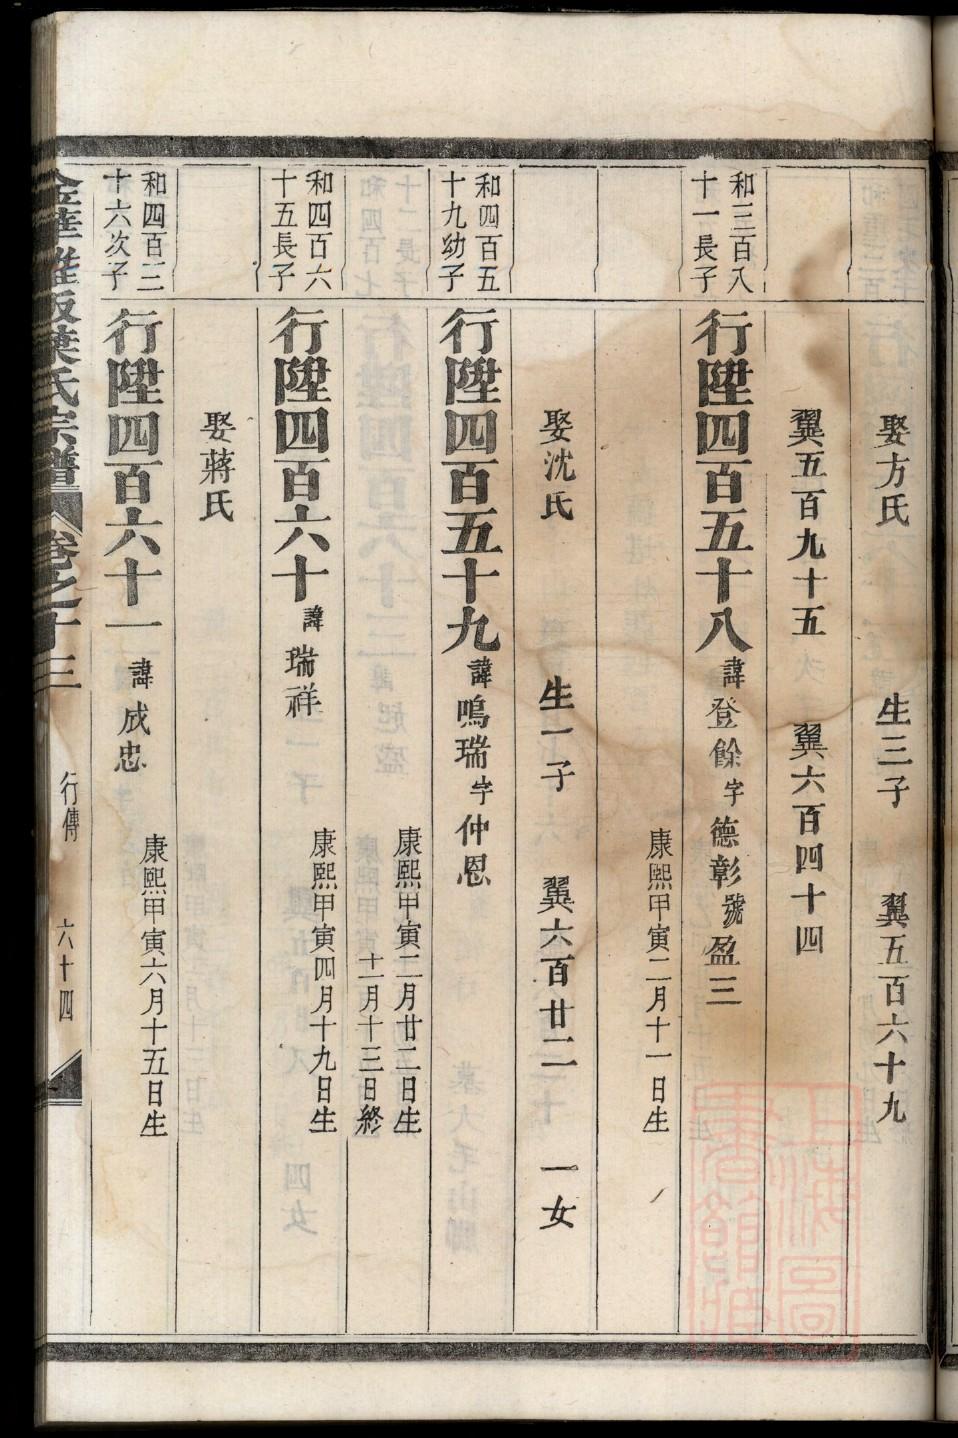 娶方氏 生三子 翼五百六十九
翼五百九十五 翼六百四十四
和三百八
十一長子
行陞四百五十八 諱登餘字德彰號盈三
康熙甲寅二月十一日生
娶沈氏 生一子 翼六百廿二 一女
和四百五
十九幼子
行陞四百五十九 諱鳴瑞字仲恩
康熙甲寅二月廿二日生
十一月十三日終
和四百六
十五長子
行陞四百六十 諱瑞祥
康熙甲寅四月十九日生
娶蔣氏
和四百三
十六次子
行陞四百六十一 諱成忠
康熙甲寅六月十五日生
金華 葉氏宗譜 卷之十三 行傳 六十四
上海圖書館藏